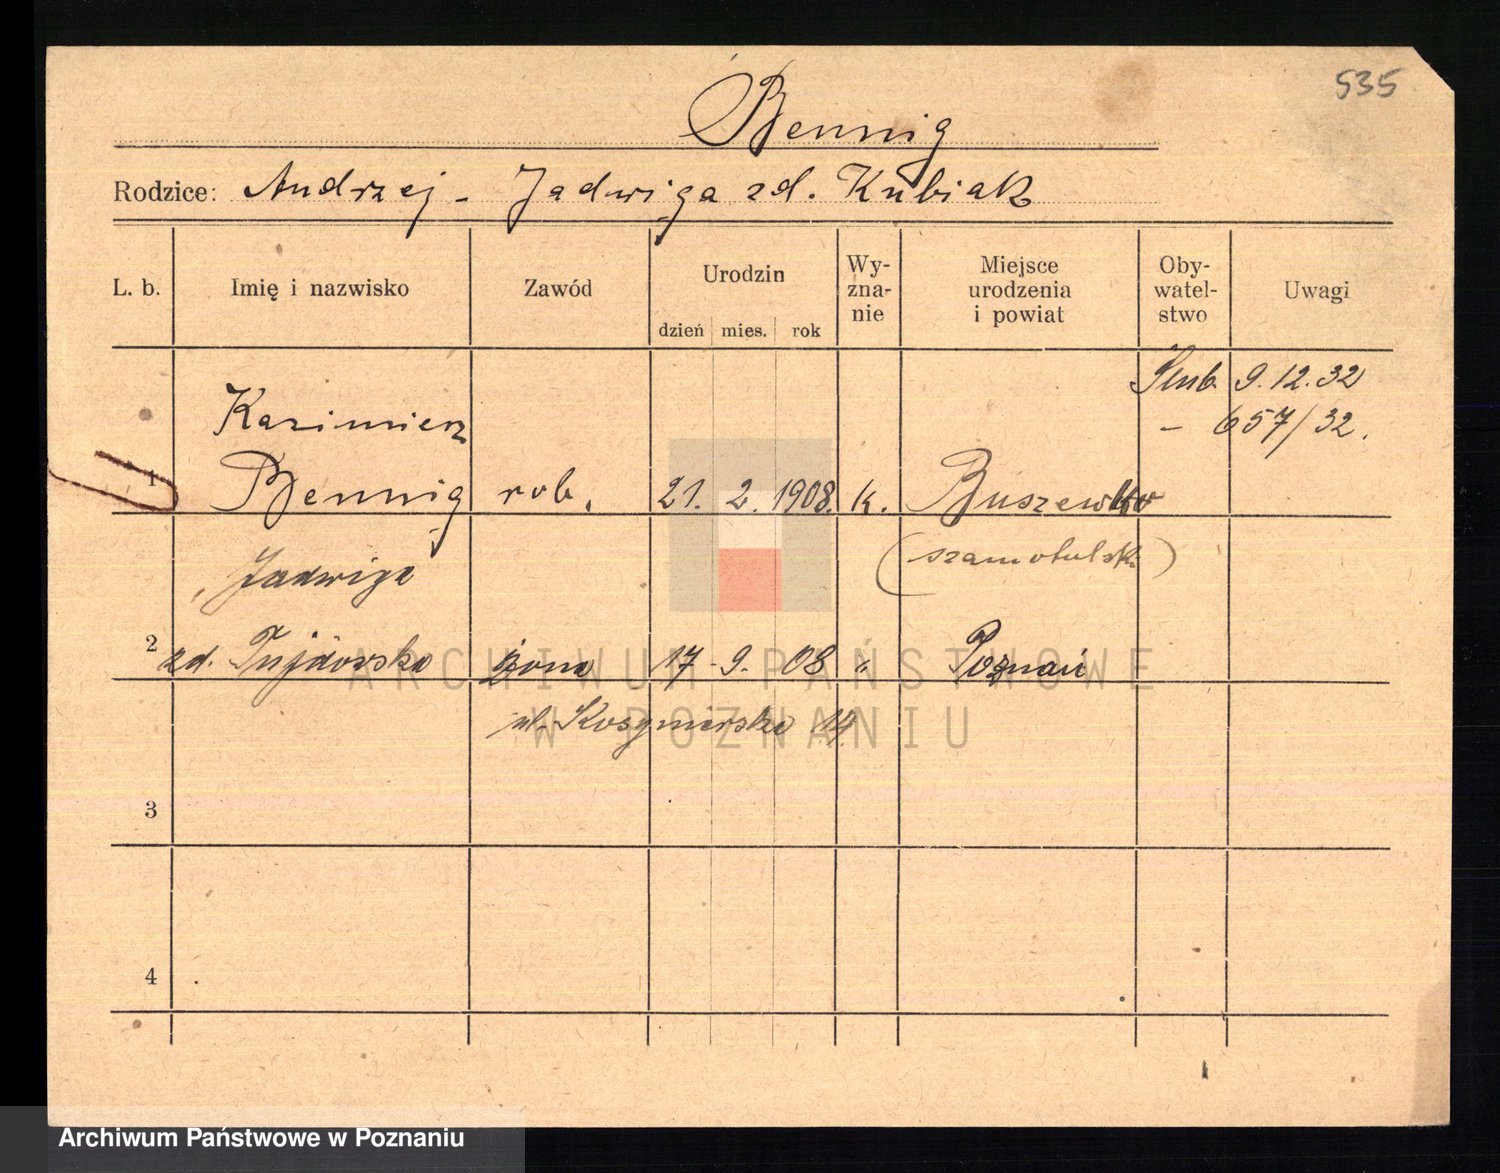 535
Bennig
Rodzice: Andrzej - Jadwiga zd. Kubiak
L. b. Imię i nazwisko Zawód Urodzin dzień mies. rok Wy-zna-nie Miejsce urodzenia i powiat Oby-watel-stwo Uwagi
Ślub. 9.12.32
- 657/32.
Kazimierz
1 Bennig rob. 21. 2. 1908. k. Buszewko
(szamotulski)
Jadwiga
2 zd. Tujdowska żona 17 - 9. 08 " Poznań
ul. 14
3
4
ARCHIWUM PAŃSTWOWE
W POZNANIU
Archiwum Państwowe w Poznaniu